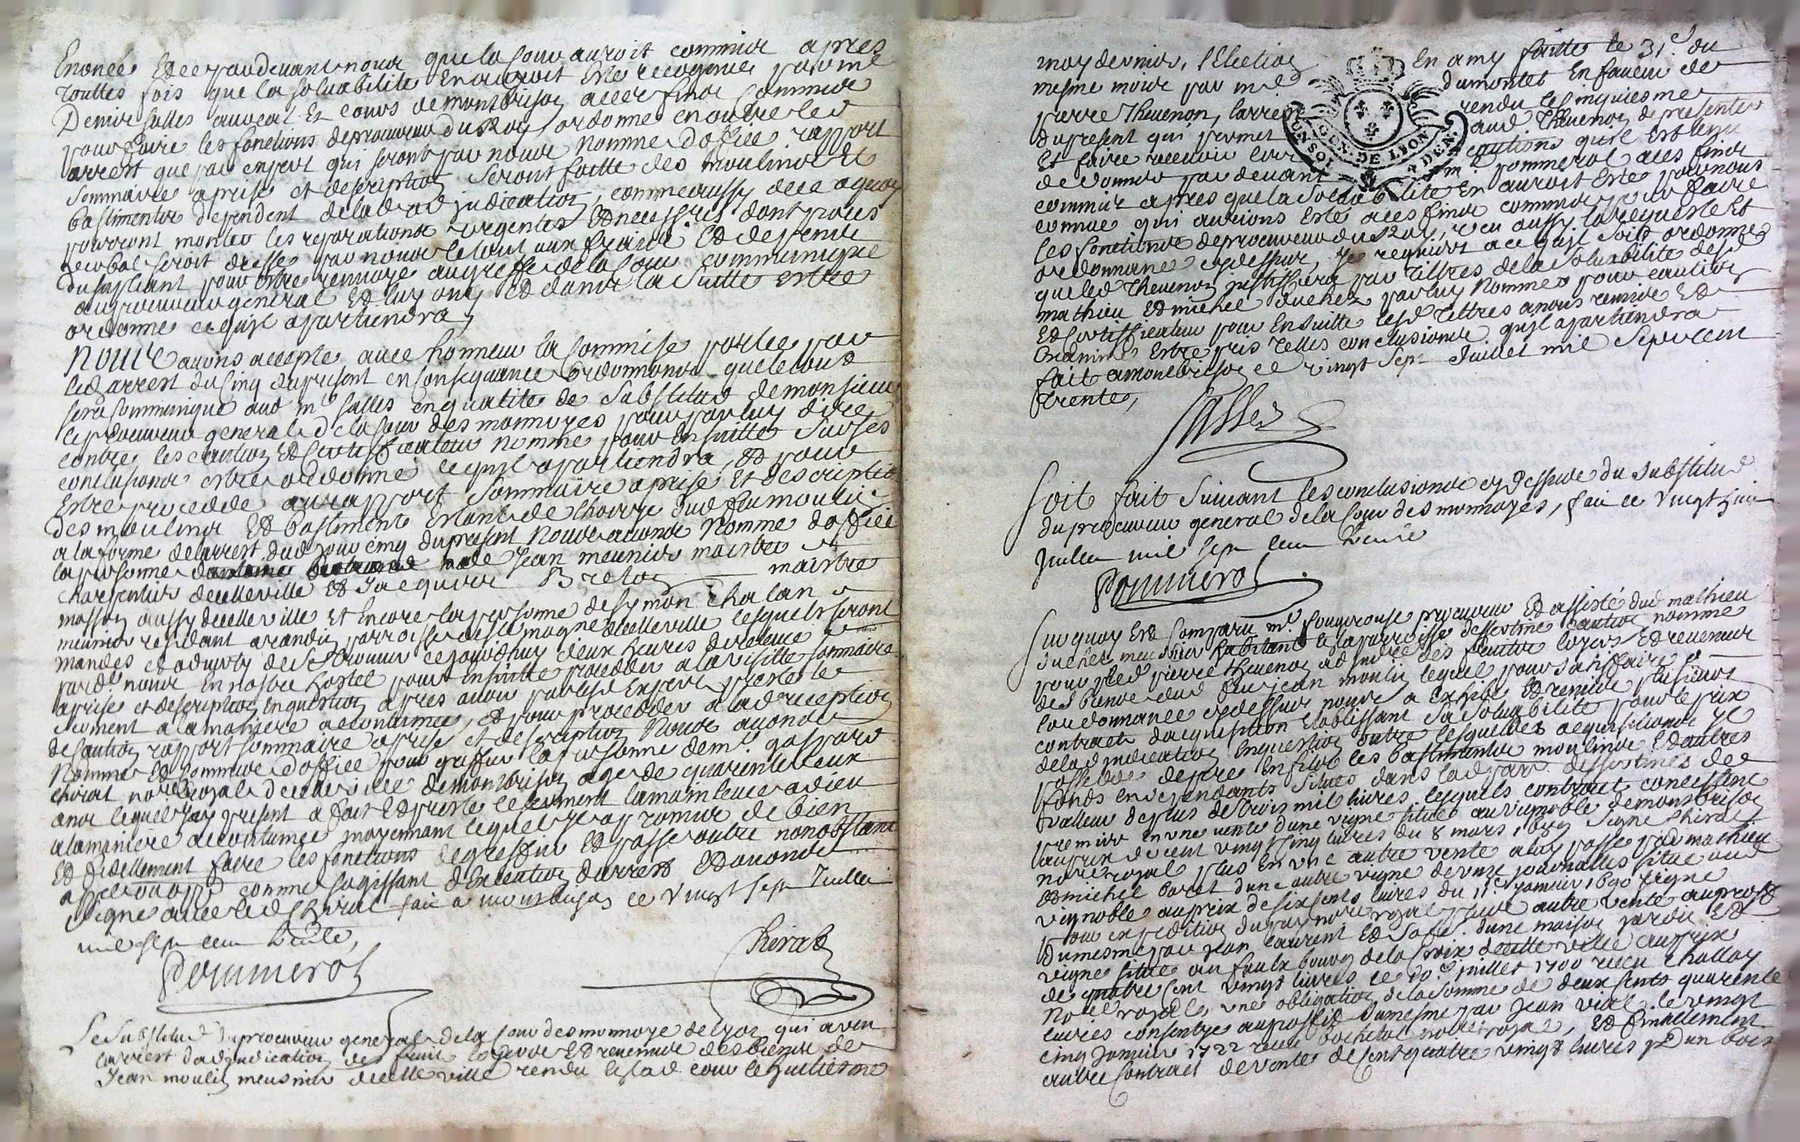 Enoncé Et ce pardevant nous que la Cour auroit commis apres
touttes fois que la soluabilité En auroit Esté recognue par me
Denis Salles auocat Et Cours de montbrison a ces fins Commis
pour faire les fonctions de procureur du Roy, ordonne en outre led
arrest que par expert qui seront par nous nommé d'office rapport
Sommaire aprise et description seront faitte des moulins Et
bastimentz dependent de lad adjudication, comme aussy de
pourront monter les reparations urgentes Et necessres dont proces
verbal seroit dressé par nous le tout aux fraix Et despens
du supliant pour estre renuoyé au greffe de la Cour communiqué
au procureur general Et luy ouy Et dans la Suitte Estre
ordonné ce qu'il apartiendra
Nous avons accepté auec honneur la Commise portée par
led arrest du cinq du present en consequance ordonnons que le tout
sera Communiqué aud mr Salles en qualité de Substitud de monsieur
le procureur general de la Cour des monnoyes pour par luy dire
contre les caution Et certifficateur nommé pour En suitte Sur ses
conclusions estre ordonné ce qu'il apartiendra, Et pour
Estre procedé au raport Sommaire aprise Et description
des moulins Et bastiments Estant de l'hoirye dud feu moulin
a la forme de l'arrest dud jour cinq du present Nous auons Nommé d'office
la personne de Jean meunier maistre
charpentier de cette ville Et Jacques Breton maistre
masson aussy de cette ville Et Encore la personne de Symon Chalan
meunier residant a randin parroisse de st magne de cette ville lesquels seront
mandés et aduerty de Se trouuer ce jourd'huy deux heures de releuée
pard. nous En nostre hostel pour En suitte proceder a la visitte Sommaire
aprise et description En question apres auoir par lesd Expert presté le
serment a la maniere accoutumée, Et pour proceder a lad reception
de caution rapport sommaire aprise et description Nous auons
Nommé Et Commis d'office pour greffier la personne de mr gaspard
Chirat nore royal de cette ville de montbrison agé de quarente deux
anos lequel Icy present a fait Et presté le serment la main leuée a dieu
a la maniere accoutumée moyennant lequel Il a promis de bien
Et fidellement faire les fonctions de greffier Et passé outre nonobstant
apel ou opp comme s'agissant d'Execution d'arrest Et auons
Signé auec led Chirat fait a montbrison ce vingt sept Juillet
mil sept cent Trente,
Pommerol
Chirat
Le Substitud du procureur general de la Cour des monnoye de Lyon qui a veu
l'arrest d'adjudication des fruit loyers Et reuenus des biens de
Jean moulin meusnier de cette ville rendu le lad cour le huitiesme
may dernier, l'Election En amy faitte le 31e du
mesme mois par me Dumontet En faueur de
pierre Theuenon, l'arrest rendu le cinquiesme
du present qui permet aud Theuenon de presenter
Et faire receuoir les cautions qu'il Est tenu
de donner par deuant mr pommerol a ces fins
commis apres que la Soluabilité En auroit Esté par nous
connue qui aurions Esté a ces fins commis pour faire
les fonctions de procureur du Roy, veu aussy la requeste Et
ordonnance cy dessus, Je requiers a ce qu'il soit ordonné
que led Theuenon justiffiera par tiltres de la soluabilité desd
mathieu Et michel duchez par luy Nommés pour caution
Et certifficateur pour En suitte lesd tiltres a nous remis Et
Examinés Estre pris telles conclusions qu'il apartiendra
fait a montbrison ce vingt Sept Juillet mil Sept cent
trente,
Salles
Soit fait Suiuant les conclusions cy dessus du Substitud
du procureur general de la Cour des monnoyes, fait ce vingt huit
Juillet mil sept cent trente
Pommerol
Sur quoy Est Comparu me fougerouse procureur Et assisté dud mathieu
duchez marchand habitant de la parroisse d'essertine caution nommé
pour led pierre Theuenon adjudre des fruitz loyers Et reuenus
des biens dud feu jean moulin lequel pour satisffaire a
l'ordonnance cy dessus nous a Exhibé Et remis plusieurs
contracts d'acquisition Establissant sa soluabilité pour le prix
de lad adjudication En question outre lesquelles acquisitions Il
possede de present En fief les bastimentz moulins Et autres
fonds en dependants Situés dans lad parr d'essertines de
valleur de plus de trois mil liures, lesquels contracts concistent
premier en une vente d'une vigne située au vignoble de montbrison
au prix de cent vingt cinq liures du 8 mars 1689 Signé Chirat
nore royal, plus En une autre vente a luy passé par mathieu
Et michel d'une autre vigne de unze journallés situé aud
vignoble au prix de six cents liures du 11e janvier 1690 signé
pour expedition du par nore royal, plus autre vente au profit
du mesme par jean laurent Et Sa fe. d'une maison jardin Et
vigne située au faulx bourg de la Croix de cette ville au prix
de quatre cent vingt liures le 20e juillet 1700 receu Challay
nore royal, une obligation de la somme de deux cents quarente
liures consentye au profit du mesme par jean vial le vingt
cinq Januier 1722 receu bochetal nore royal, Et finallement
autre Contract de vente de cent quatre vingt liures d'un bois
GEN. DE LYON